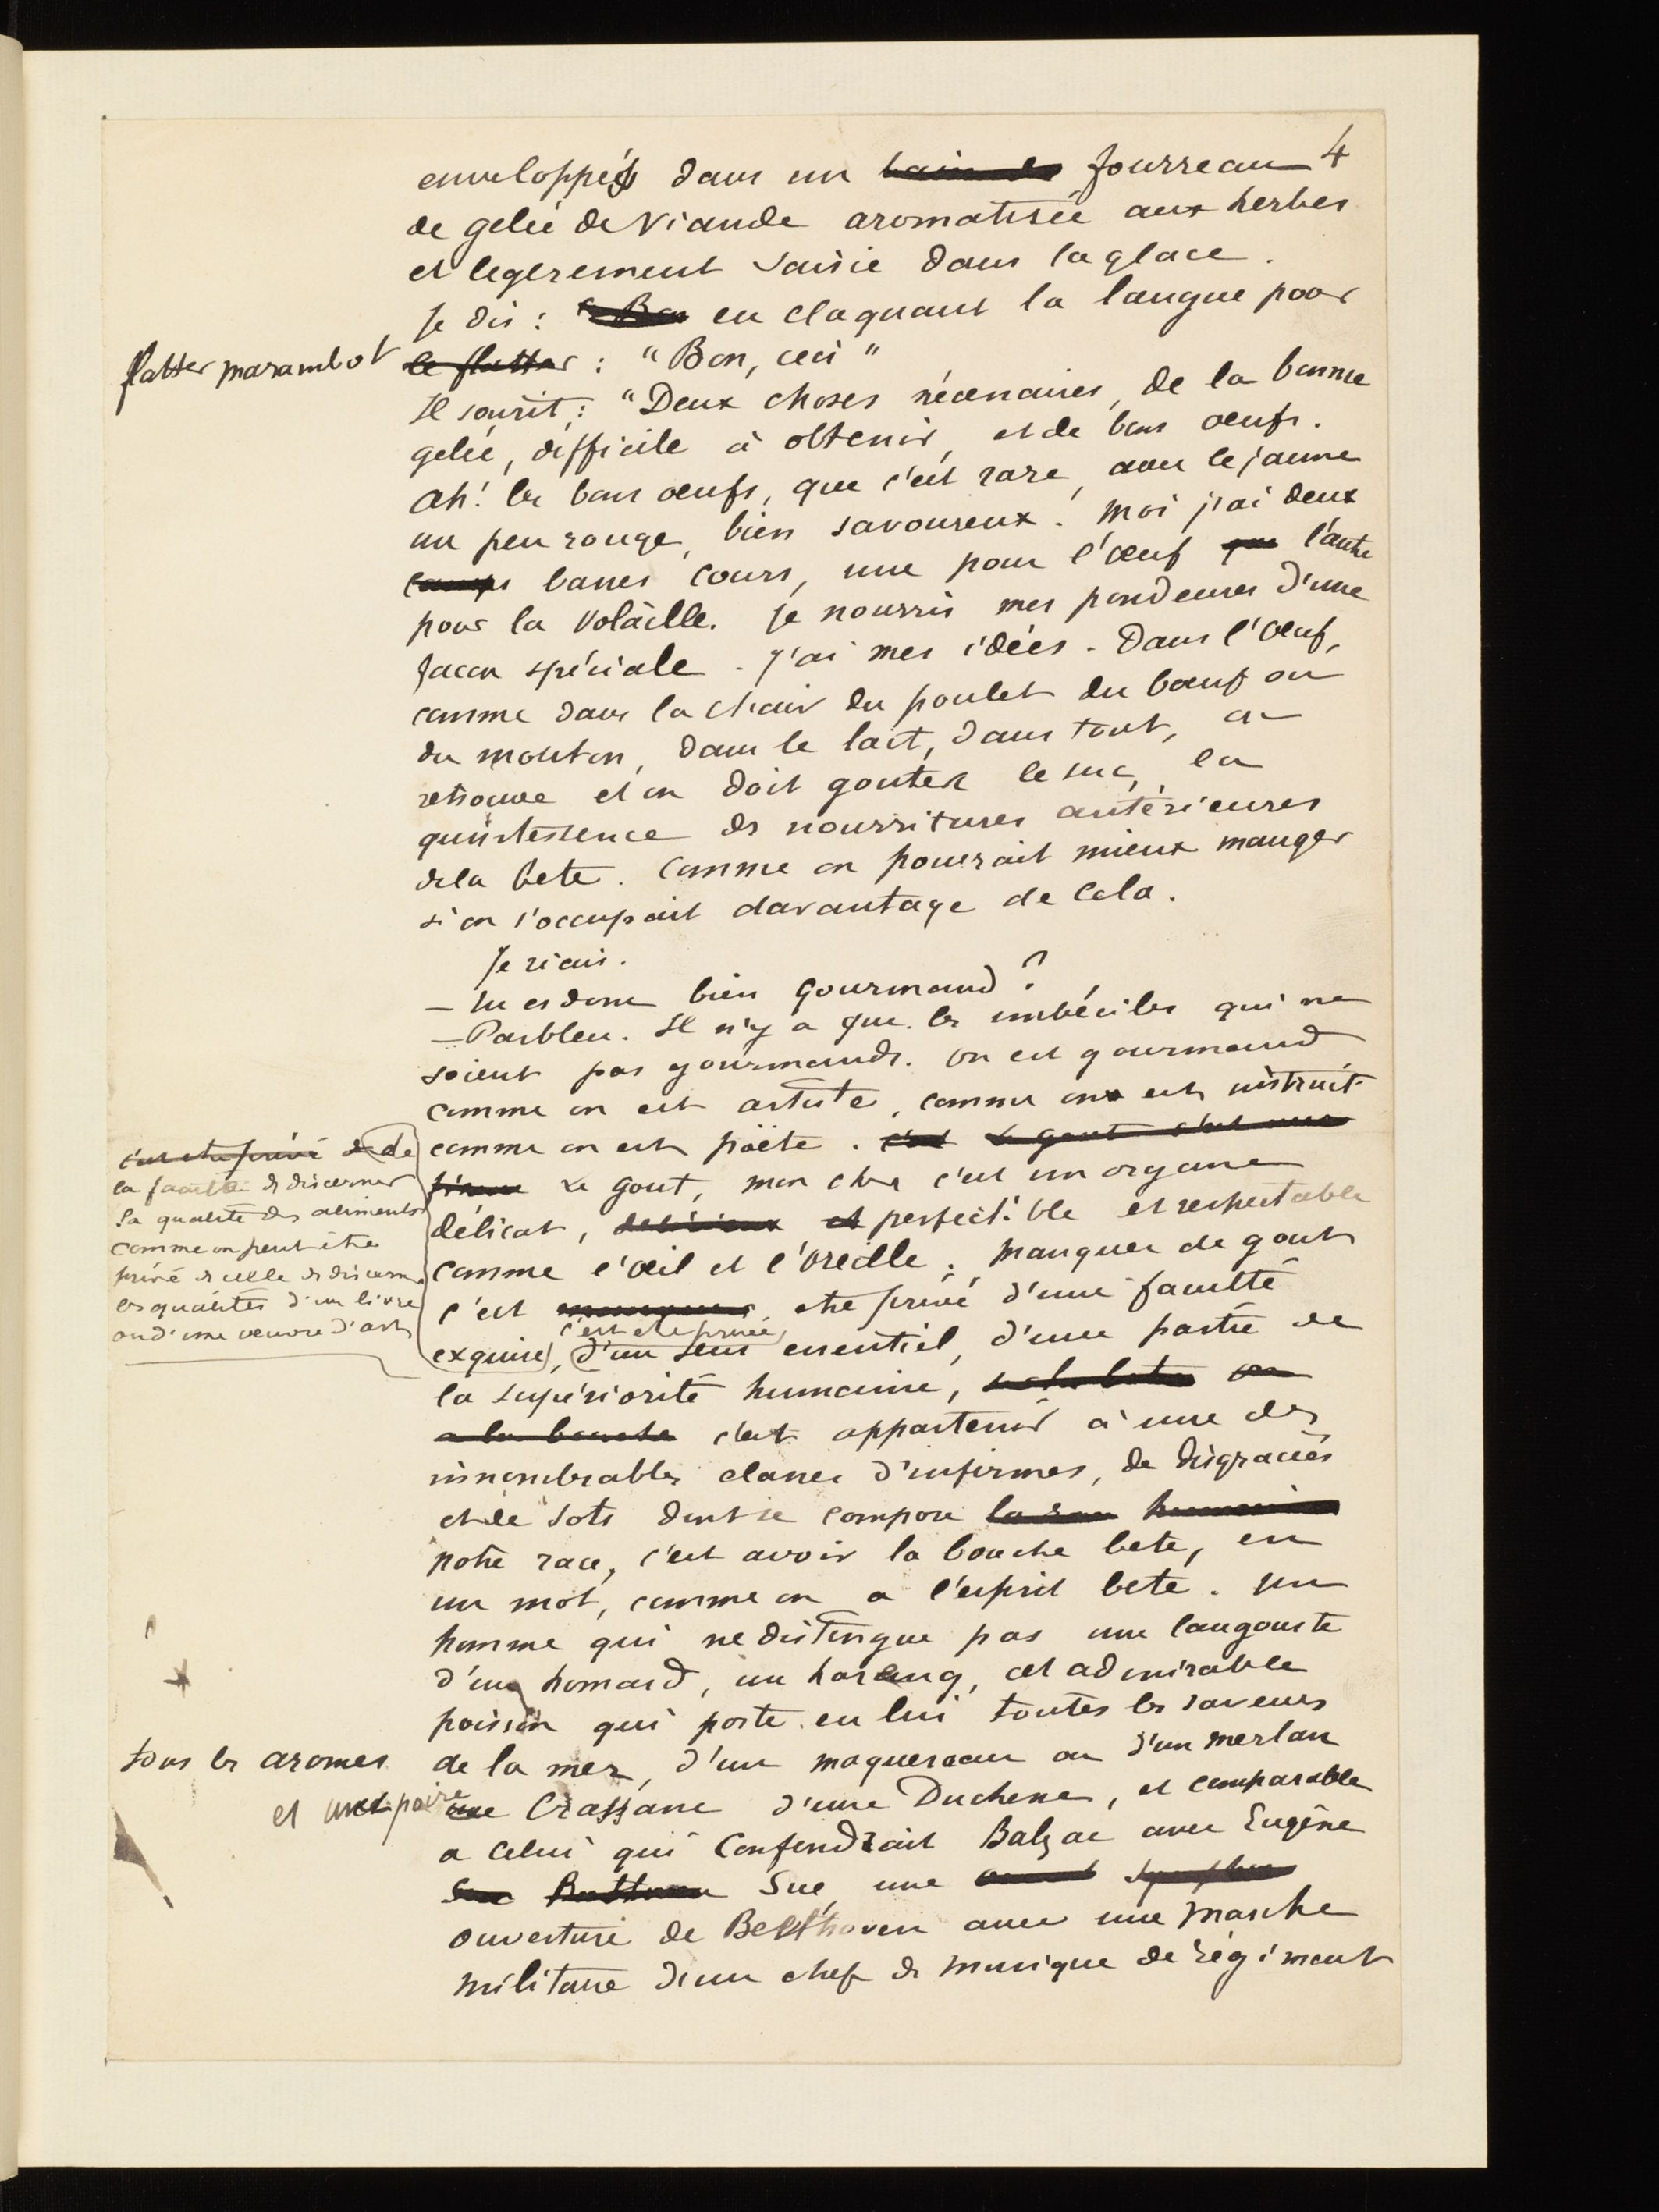 4
enveloppés dans un fourreau
de gelée de viande aromatisée aux herbes
et legerement saisie dans la glace.
Je dis : en claquant la langue pour
flatter marambot
le flatter : "Bon, ceci"
Il sourit : "Deux choses nécessaires, de la bonne
gelée, difficile à obtenir, et de bons oeufs.
Ah! les bons oeufs, que c'est rare, avec le jaune
un peu rouge, bien savoureux. Moi j'ai deux
basses cours, une pour l'oeuf l'autre
pour la volaille. Je nourris mes pondeuses d'une
facon spéciale. J'ai mes idées. Dans l'oeuf,
comme dans la chair du poulet du boeuf ou
du mouton, dans le lait, dans tout, on
retrouve et on doit gouter le suc, la
quintessence des nourritures antérieures
de la bete. Comme on pourrait mieux manger
si on s'occupait davantage de cela.
Je riais.
— Tu es donc bien gourmand ?
— Parbleu. Il n'y a que les imbéciles qui ne
soient pas gourmands. On est gourmand
comme on est artiste, comme on est instruit
comme on est poëte. c'est Le gout c'est une
Le gout, mon cher c'est un organe
délicat, délicieux et perfectible et respectable
comme l'oeil et l'oreille. Manquer de gout
c'est manquer etre privé d'une faculté
c'est etre privée
exquise, d'un sens essentiel, d'une partie de
c'est etre privé de de
la faculté de discerner
la qualité des aliments
comme on peut être
privé de celle de discerner
les qualités d'un livre
ou d'une oeuvre d'art
la supériorité humaine, on
a la bouche c'est appartenir à une des
innombrables classes d'infirmes, de disgraciés
et de sots dont se compose la race humaine
notre race, c'est avoir la bouche bete, en
un mot, comme on a l'esprit bete. Un
homme qui ne distingue pas une langouste
d'un homard, un hareng, cet admirable
poisson qui porte en lui toutes les saveurs
tous les aromes
de la mer, d'un maquereau ou d'un merlan
et une poire
une Crassane d'une Duchesse, est comparable
a celui qui confondrait Balzac avec Eugène
Sue Sue, une
ouverture de Beethoven avec une marche
militaire d'un chef de musique de régiment